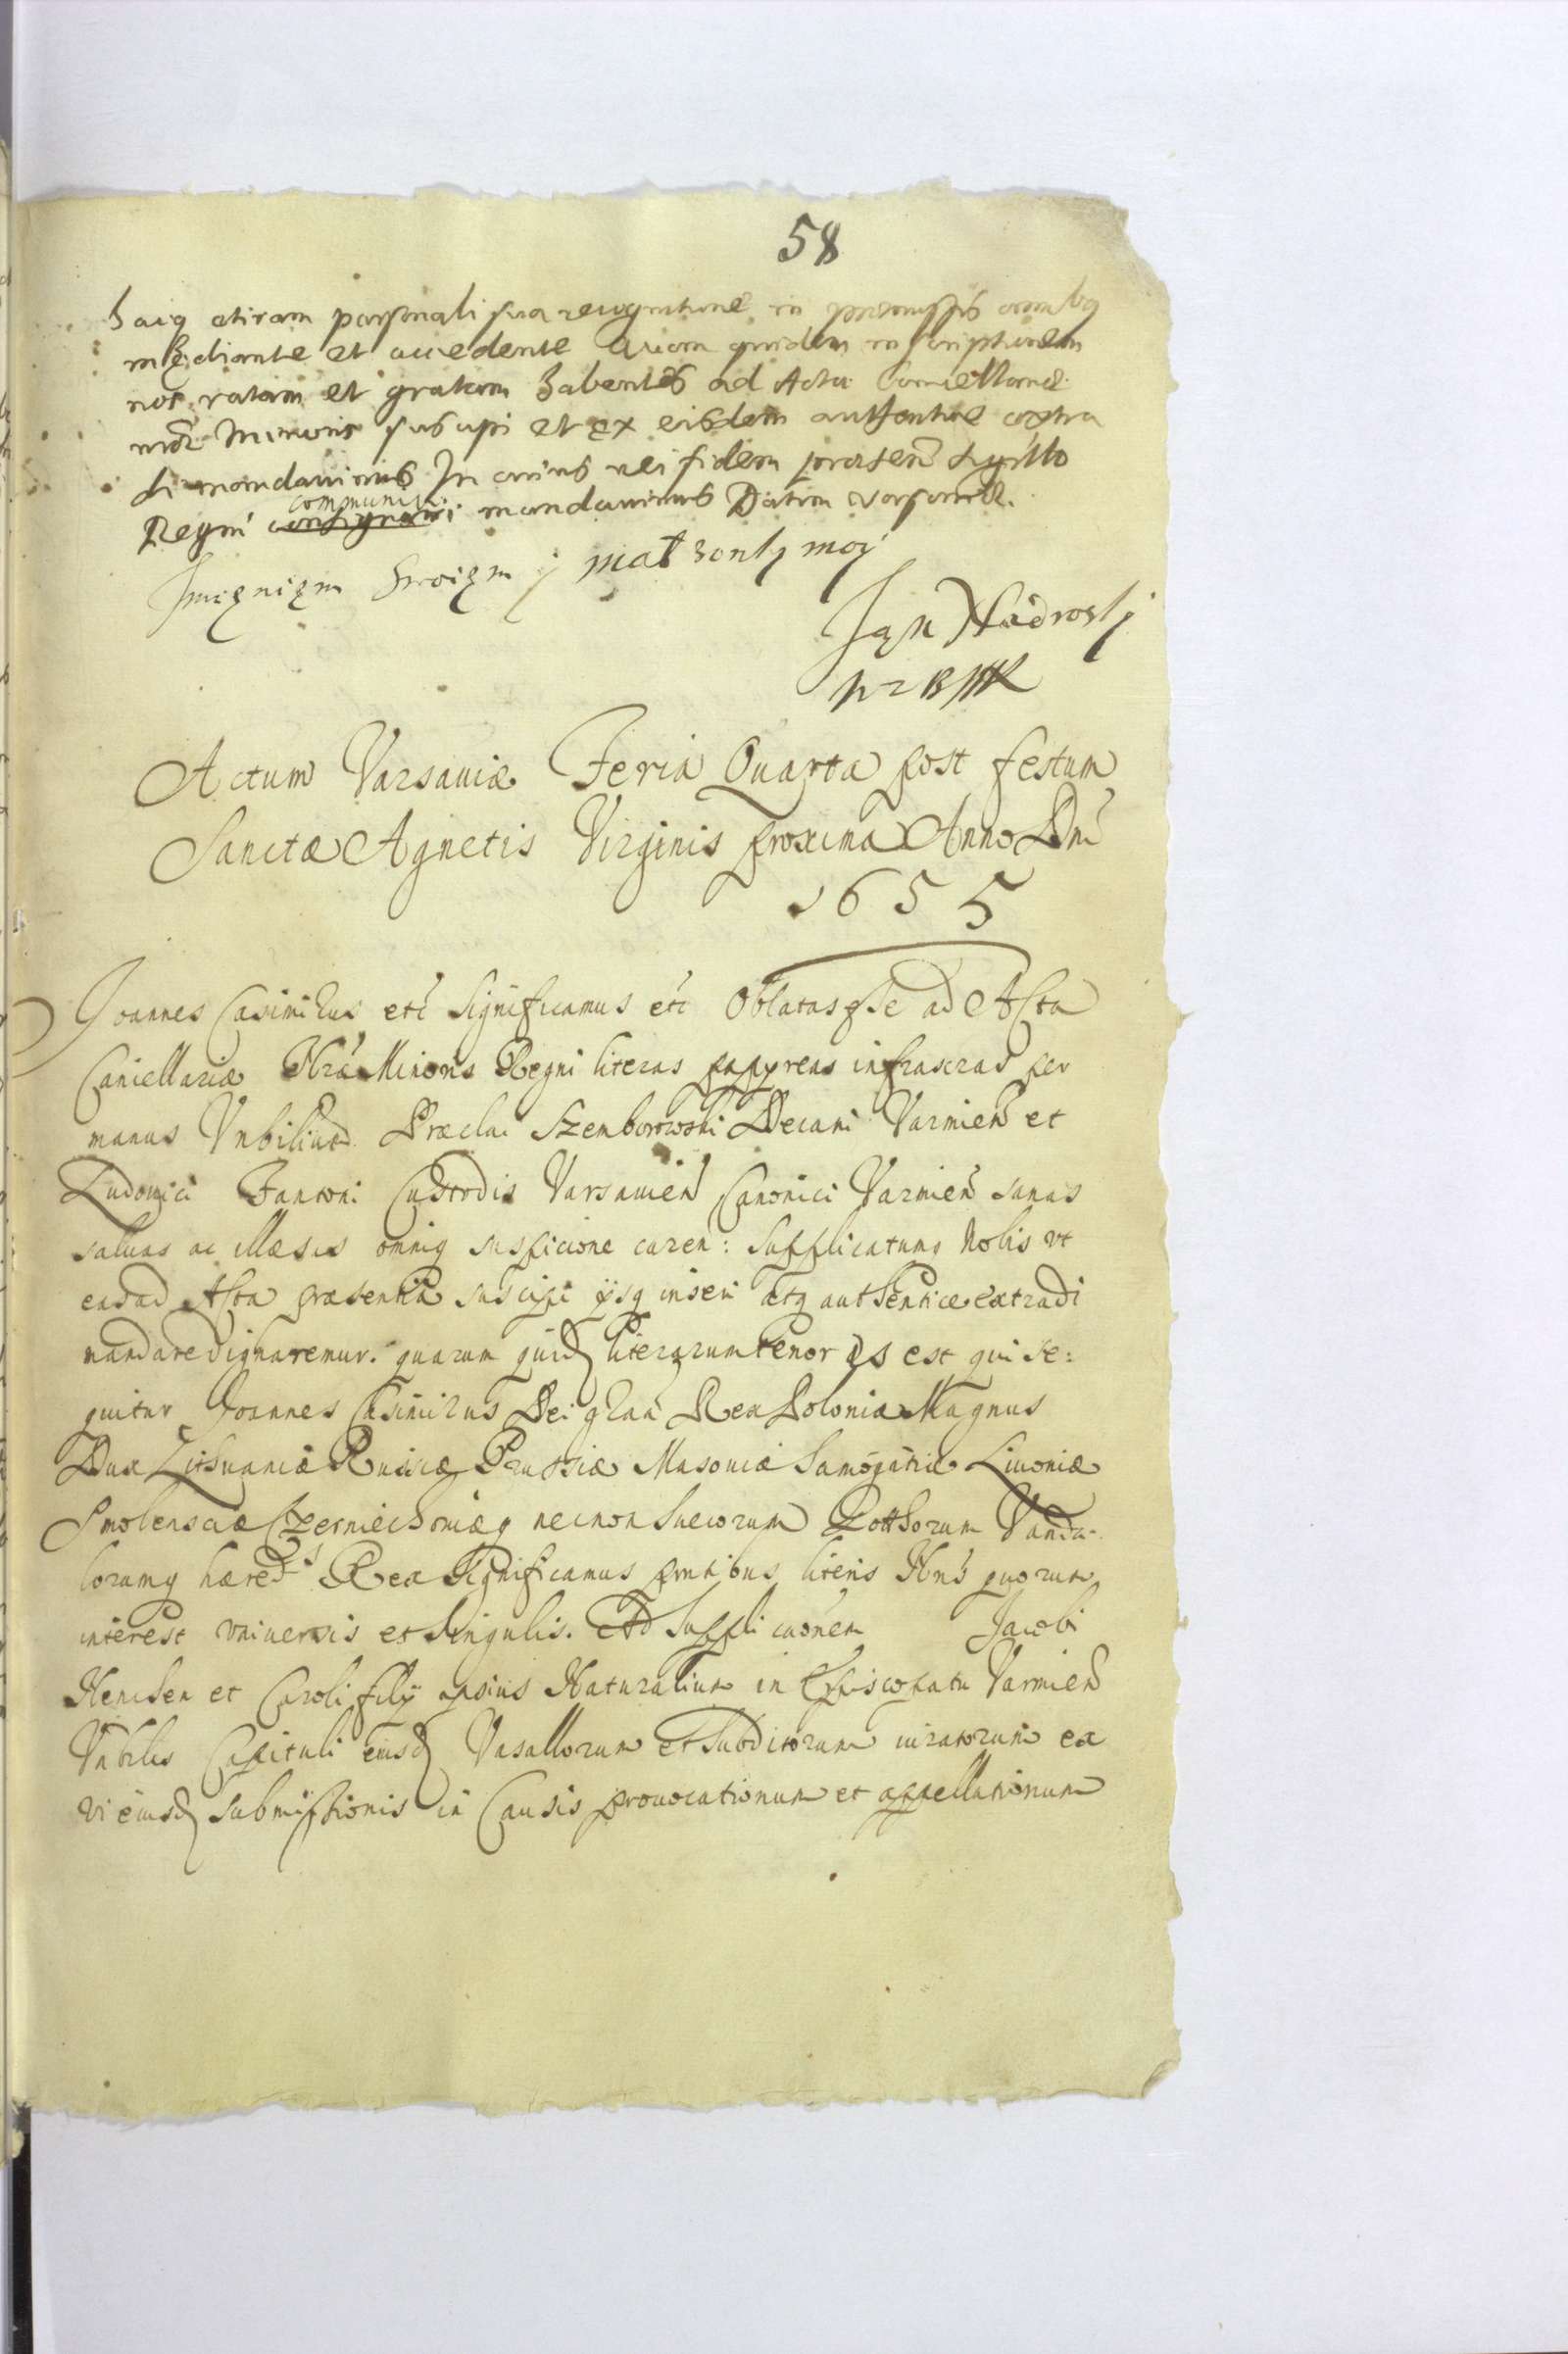 58
haiq etiam personali sua recognitione in praemissis omnibq
mediante et accedente Quam quidem inscriptionem
nos ratam et gratam habentes ad Acta Cancellariae
nrae Minoris suscipi et ex eisdem authentice extra
di mandavimus In cuius rei fidem praesen sigillo
Regni communiri mandavimus Datum Varsaviae.
Imięnięm Swoięm j małzonkj moj
Jąn
Actum Varsauiæ Feria Quarta post festum
Sanctæ Agnetis Virginis proxima Anno Dni
1655
Joannes Casimirus etc Significamus etc Oblatas esse ad Acta
Cancellariæ Nrae Minoris Regni literas papyreas infrascras per
manus Vnbilium Præclai Szemborowski Decani Varmien et
Ludouici Fantoni Custodis Varsauien Canonici Varmien sanas
saluas ac illæsas omniq suspicione caren: supplicatumq Nobis vt
eas ad Acta præsentia suscipi ijsq inseri atq authenticè extradi
mandare dignaremur. quarum quid literarum tenor is est qui se:
quitur Joannes Casimirus Dei graa Rex Poloniæ Magnus
Dux Lithuaniæ Russiæ Prussiæ Masouiæ Samogitiæ Liuoniæ
Smolensciæ Czerniechouiæq necnon Suecorum Gotthorum Vanda-
lorumq hæreds Rex Significamus pntibus literis Nris quorum
interest vniuersis et singulis. Ad supplicaonem Jacobi
Henchen et Caroli filij ipsius Naturalium in Episcopatu Varmien
Vnbilis Capituli eiusd Vasallorum et Subditorum iuratorum ex
vi eiusd submissionis in Causis prouocationum et appellationum